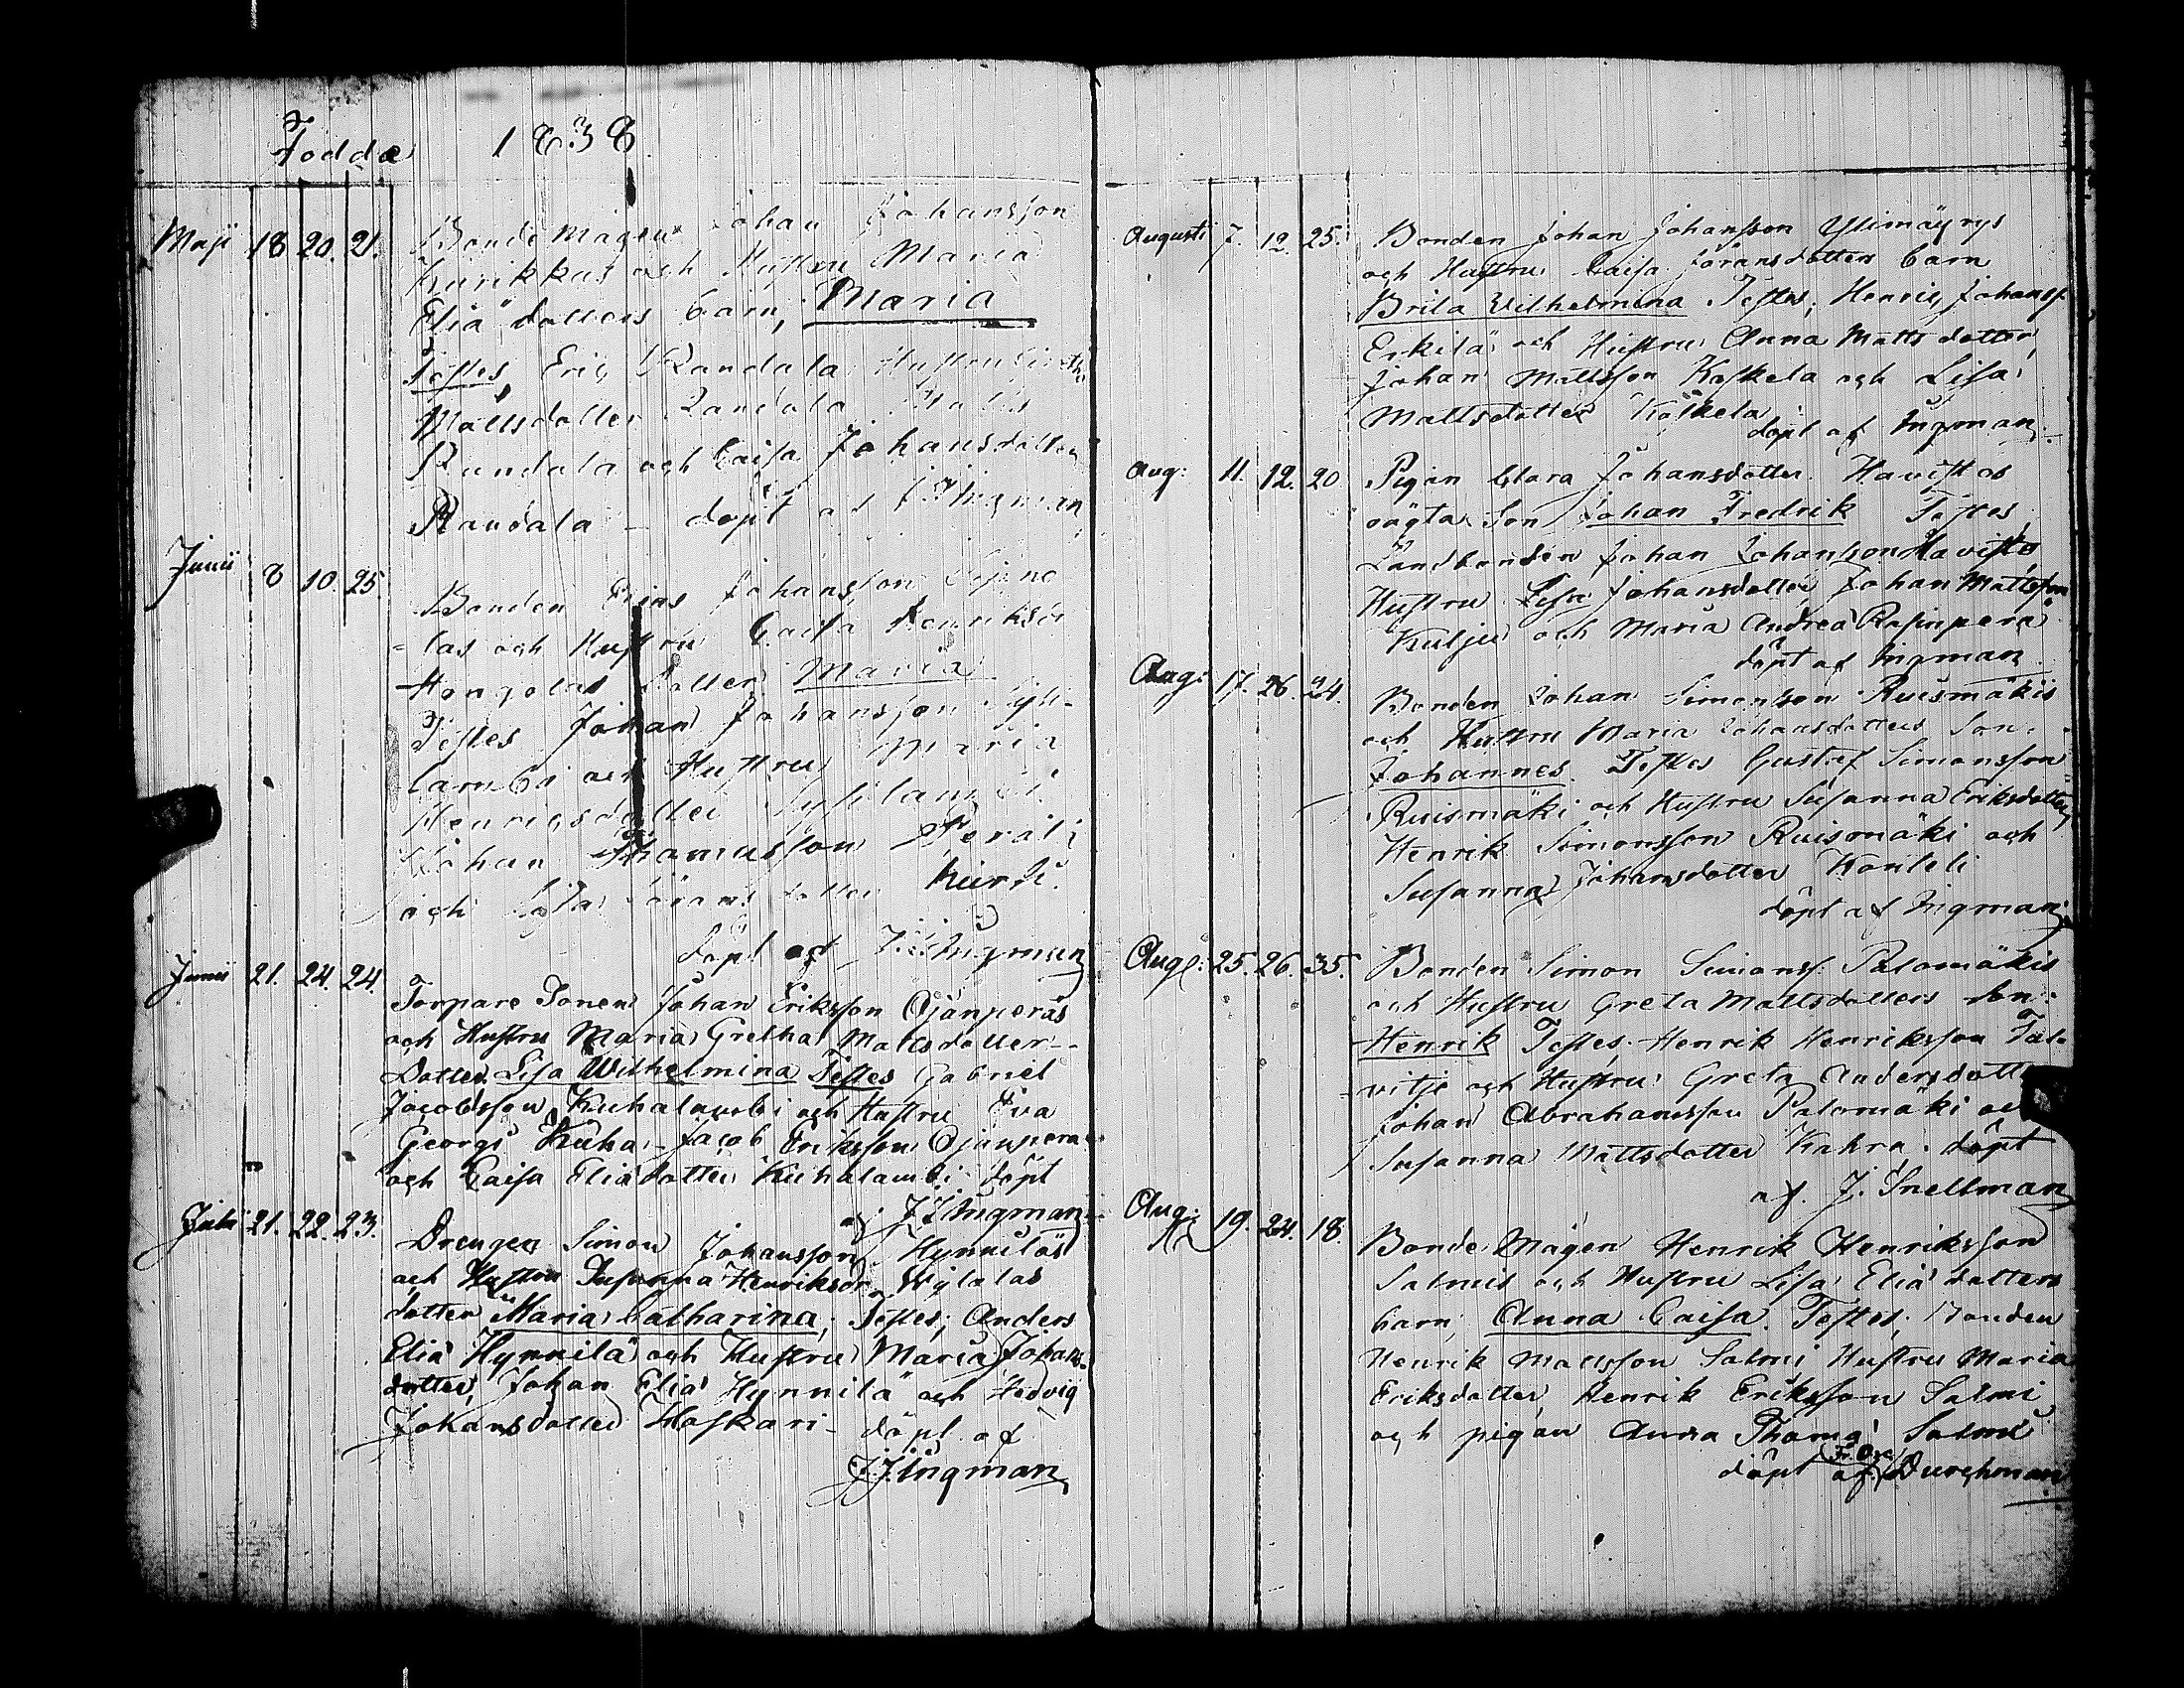 Födda 1838
Maji 18 20. 21. Bonde Mågen Johan Johansson
Kurikkas och Hustru Maria
Eliä dotters barn, Maria
Testes, Eric Randala Hustru
Mattsdotter Randala
Randala och Caisa Johansdotter
Randala – döpt af J. Ingman
Junii 8 10. 25. Bonden Johansson
las och Hustru Caisa Henriksdr
dotter Maria
Testes Johan Johansson Syli-
lambi och Hustru Maria
Henricsdotter
Johan Thomasson Peräli
och Görans dotter Kurki.
döpt af J. Ingman
Junii 21. 24. 24. Torpare Sonen Johan Eriksson Ojanperäs
och Hustru Maria Gretha Mattsdotter
Dotter Lisa Wilhelmina Testes Gabriel
Jacobsson Kuhalambi och Hustru Eva
Georgs Kuha – Jacob Eriksson Ojanperä
och Caisa Eliä dotter Kuhalambi döpt
af J J Ingman
Julii 21. 22. 23. Drengen Simon Johansson Hynniläs
och Hustru Susanna Henriksdr
dotter Maria Catharina; Testes; Anders
Eliä Hynnilä och Hustru Maria Johans-
dotter, Johan Eliä Hynnilä och Hedvig
Johansdotter Haskari – döpt af
J.J. Ingman
Augusti 7. 12. 25. Bonden Johan Johansson Ylimäyrys
och Hustru Caisa Göransdotters barn
Brita Wilhelmina Testes; Henric Johanss.
Erkilä och Hustru Anna Matts dotter,
Johan Mattsson Koskela och Lisa
Mattsdotter Koskela
döpt af Ingman.
Aug: 11. 12. 20 Pigan Clara Johansdotter Havistos
oägta Son Johan Fredrik Testes
Landbonden Johan Johansson Havisto
Hustru Lisa Johansdotter Johan Mattsson
Kulju och Maria Andreä Rasinperä
döpt af Ingman.
Aug: 17. 26. 24. Bonden Johan Simonsson Ruismäkis
och Hustru Maria Johansdotters Son.
Johannes. Testes Gustaf Simonsson
Ruismäki och Hustru Susanna Eriksdotter
Henrik Simonsson Ruismäki och
Susanna Johansdotter Konteli
döpt af Ingman
Aug: 25. 26. 35. Bonden Simon Simonss. Palomäkis
och Hustru Greta Mattsdotters Son:
Henrik Testes. Henrik Henriksson Tal-
vitje och Hustru Greta Andersdotter
Johan Abrahamsson Palomäki och
Susanna Mattsdotter Kahra. döpt
af. J. Snellman
Aug: 19. 24. 18. Bonde Mågen Henrik Henriksson
Salmis och Hustru Lisa Eliä dotters
barn; Anna Caisa. Testes; Bonden
Henrik Mattsson Salmi Hustru Maria
Eriksdotter, Henrik Eriksson Salmi
och pigan Anna Thomä Salmi
döpt af Durchman